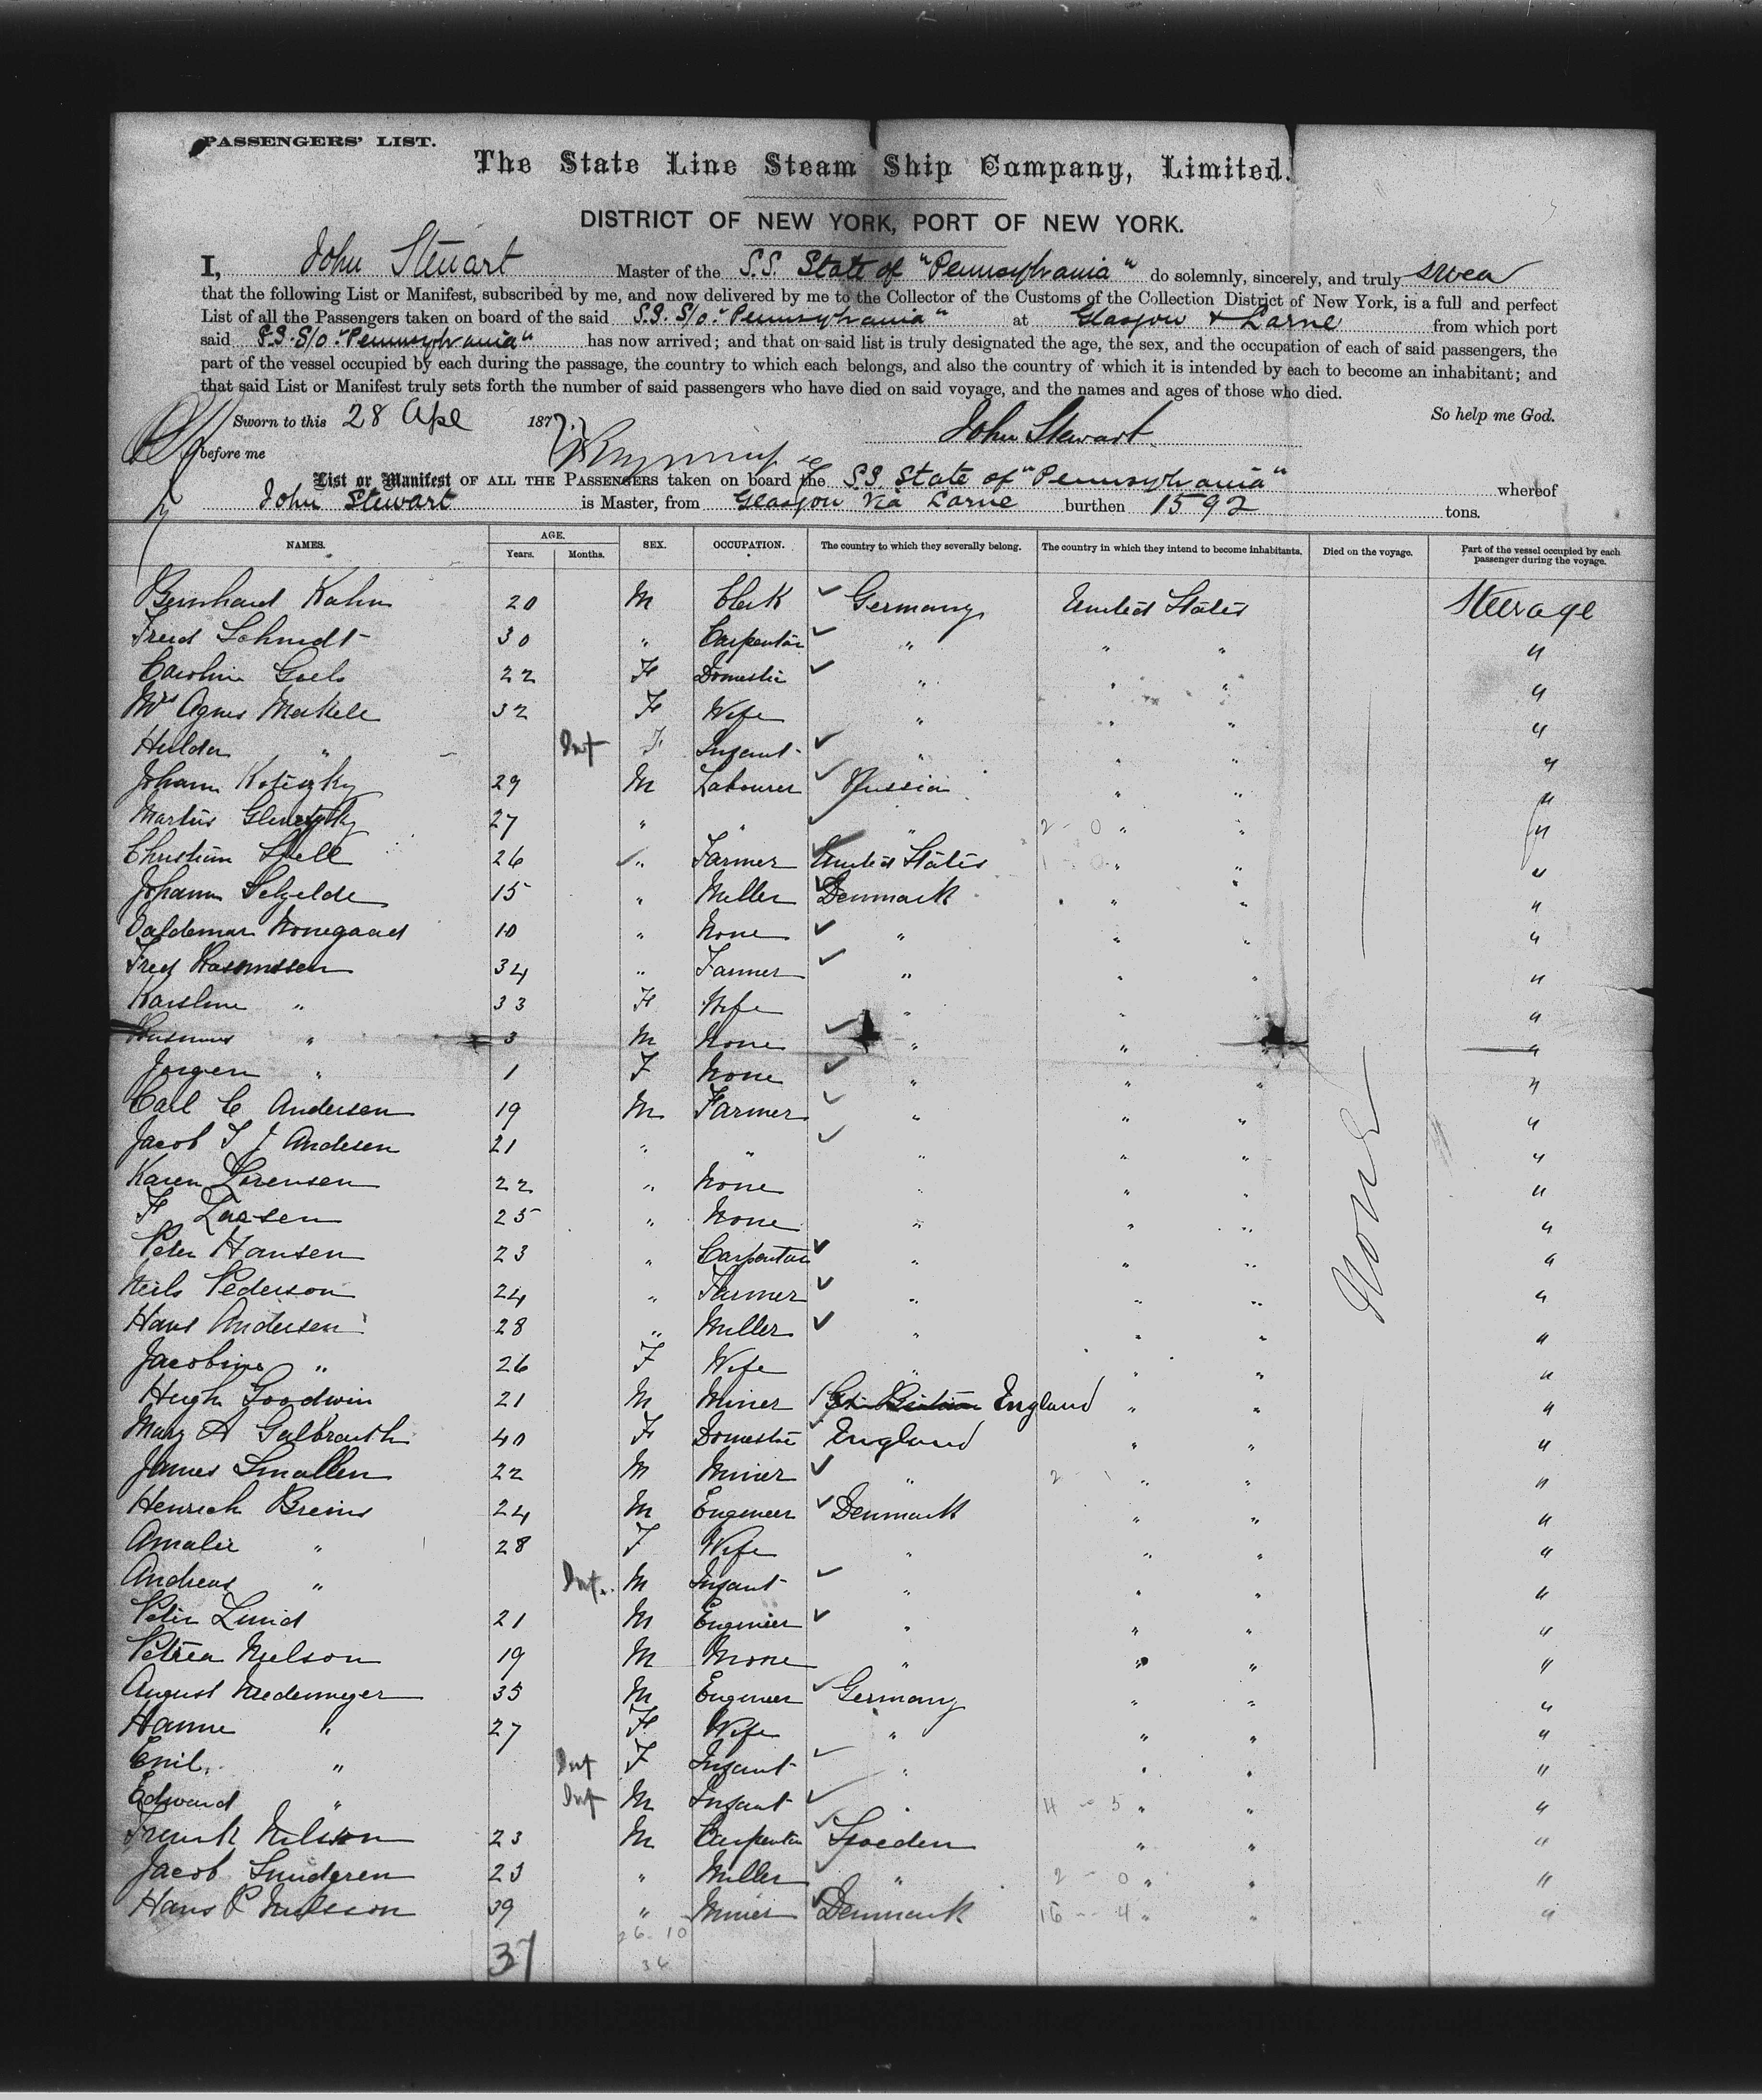 PASSENGERS' LIST.
The State Line Steam Ship Company, Limited.
DISTRICT OF NEW YORK, PORT OF NEW YORK.
I, John Stewart Master of the S.S. State of "Pennsylvania" do solemnly, sincerely, and truly swear
that the following List or Manifest, subscribed by me, and now delivered by me to the Collector of the Customs of the Collection District of New York, is a full and perfect
List of all the Passengers taken on board of the said S.S. S/o "Pennsylvania" at Glasgow & Larne from which port
said S.S. S/o "Pennsylvania" has now arrived; and that on said list is truly designated the age, the sex, and the occupation of each of said passengers, the
part of the vessel occupied by each during the passage, the country to which each belongs, and also the country of which it is intended by each to become an inhabitant; and
that said List or Manifest truly sets forth the number of said passengers who have died on said voyage, and the names and ages of those who died.
Sworn to this 28 Apl 187 So help me God.
before me John Stewart
List or Manifest OF ALL THE PASSENGERS taken on board the S.S. State of "Pennsylvania" whereof
John Stewart is Master, from Glasgow via Larne burthen 1592 tons.
NAMES. AGE. Years. Months. SEX. OCCUPATION. The country to which they severally belong. The country in which they intend to become inhabitants. Died on the voyage. Part of the vessel occupied by each passenger during the voyage.
Bernhard Kahn 20 M Clerk Germany United States Steerage
Fred Schmidt 30 " Carpenter " " " "
Caroline 22 F Domestic " " " "
Mrs Agnes 32 F Wife " " " "
Hulda " Inf F Infant " " " "
Johann 29 M Labourer Russia " " "
27 " " " " " "
Christian 26 " Farmer United States " " "
Johann 15 " Miller Denmark " " "
Valdemar 10 " None " " " "
Fred Rasmussen 34 " Farmer " " " "
" 33 F Wife " " " "
Rasmus " 3 M None " " " "
Jorgen " 1 F None " " " "
Carl C Andersen 19 M Farmer " " " "
Jacob T J Andersen 21 " " " " " "
Karen Lorensen 22 " None " " " "
F Larsen 25 " None " " " "
Peter Hansen 23 " Carpenter " " " "
Neils Pederson 24 " Farmer " " " "
Hans Andersen 28 " Miller " " " "
Jacobine " 26 F Wife " " " "
Hugh Goodwin 21 M Miner Gt. Britain England " " "
Mary A Galbraith 40 F Domestic England " " "
James Smallen 22 M Miner " " " "
Henrich 24 M Engineer Denmark " " "
Amalie " 28 F Wife " " " "
Andreas " Inf. M Infant " " " "
Peter Lund 21 M Engineer " " " "
Petrea Nielson 19 M None " " " "
August Niedermeyer 35 M Engineer Germany " " "
Hanne " 27 F Wife " " " "
Emil " Inf F Infant " " " "
Edward " Inf M Infant " " " "
Frank Nilsson 23 M Carpenter Sweden " " "
Jacob 23 " Miller " " " "
Hans P 39 " Miner Denmark " " "
None
37
26-10